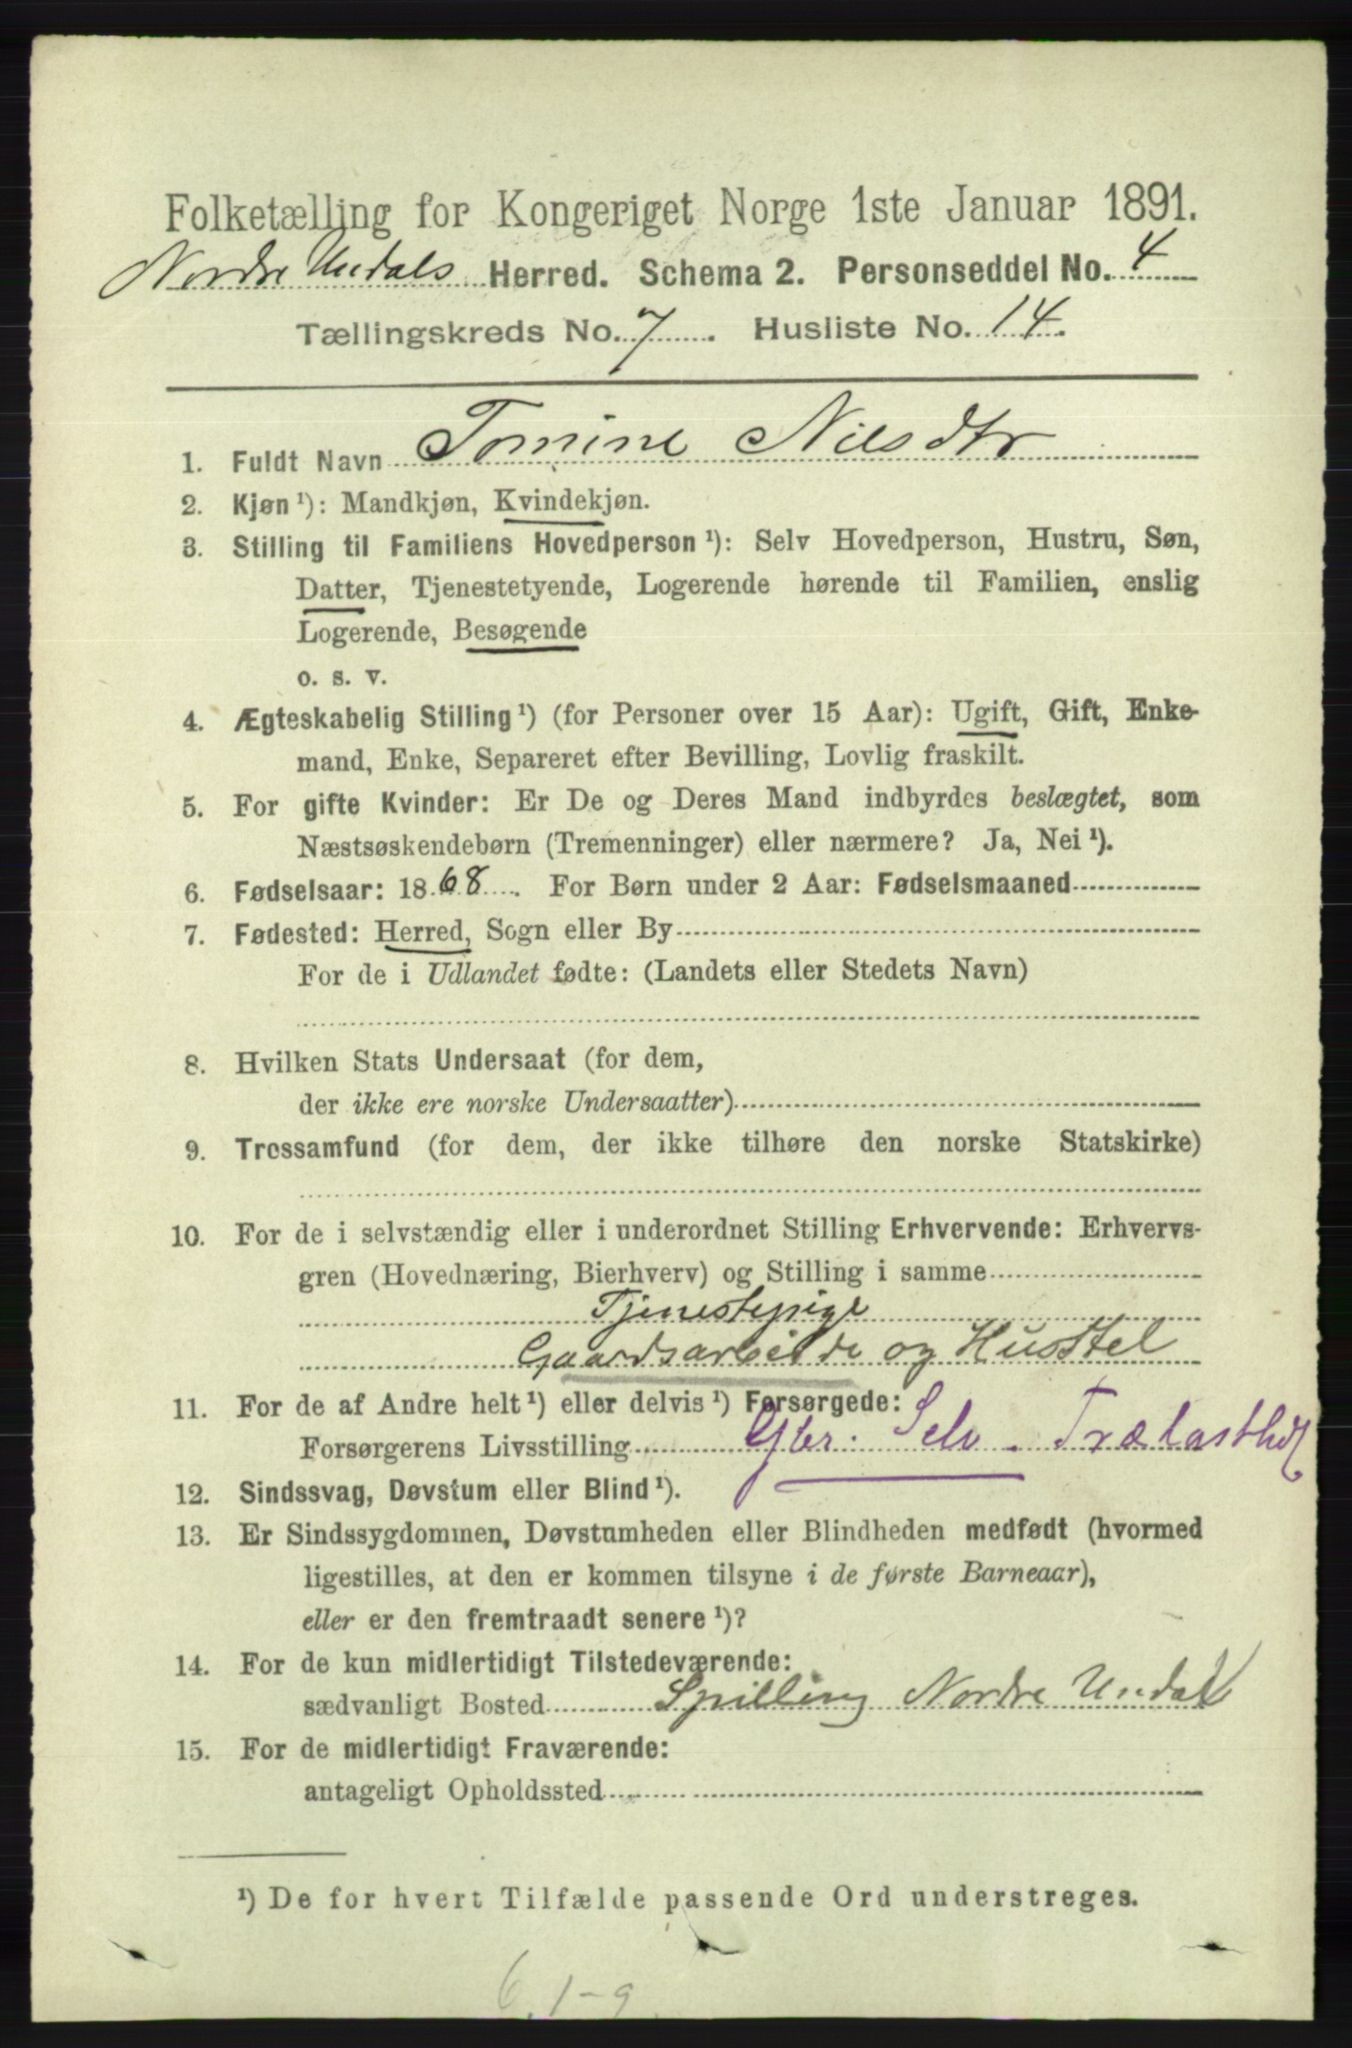 Folketælling for Kongeriget Norge 1ste Januar 1891.
Nordre Undals Herred. Schema 2. Personseddel No. 4
Tællingskreds No. 7. Husliste No. 14.
1. Fuldt Navn Tomine Nilsdtr
2. Kjøn¹): Mandkjøn, Kvindekjøn.
3. Stilling til Familiens Hovedperson¹): Selv Hovedperson, Hustru, Søn,
Datter, Tjenestetyende, Logerende hørende til Familien, enslig
Logerende, Besøgende
o. s. v.
4. Ægteskabelig Stilling¹) (for Personer over 15 Aar): Ugift, Gift, Enke-
mand, Enke, Separeret efter Bevilling, Lovlig fraskilt.
5. For gifte Kvinder: Er De og Deres Mand indbyrdes beslægtet, som
Næstsøskendebørn (Tremenninger) eller nærmere? Ja, Nei¹).
6. Fødselsaar: 1868. For Børn under 2 Aar: Fødselsmaaned
7. Fødested: Herred, Sogn eller By
For de i Udlandet fødte: (Landets eller Stedets Navn)
8. Hvilken Stats Undersaat (for dem,
der ikke ere norske Undersaatter)
9. Trossamfund (for dem, der ikke tilhøre den norske Statskirke)
10. For de i selvstændig eller i underordnet Stilling Erhvervende: Erhvervs-
gren (Hovednæring, Bierhverv) og Stilling i samme
Tjenestepige
Gaardsarbeide og Husstel
11. For de af Andre helt¹) eller delvis¹) Forsørgede:
Forsørgerens Livsstilling Gbr. Selv. Trælasthdl
12. Sindssvag, Døvstum eller Blind¹).
13. Er Sindssygdommen, Døvstumheden eller Blindheden medfødt (hvormed
ligestilles, at den er kommen tilsyne i de første Barneaar),
eller er den fremtraadt senere¹)?
14. For de kun midlertidigt Tilstedeværende:
sædvanligt Bosted Spilling Nordre Undal
15. For de midlertidigt Fraværende:
antageligt Opholdssted
¹) De for hvert Tilfælde passende Ord understreges.
6. 1-9